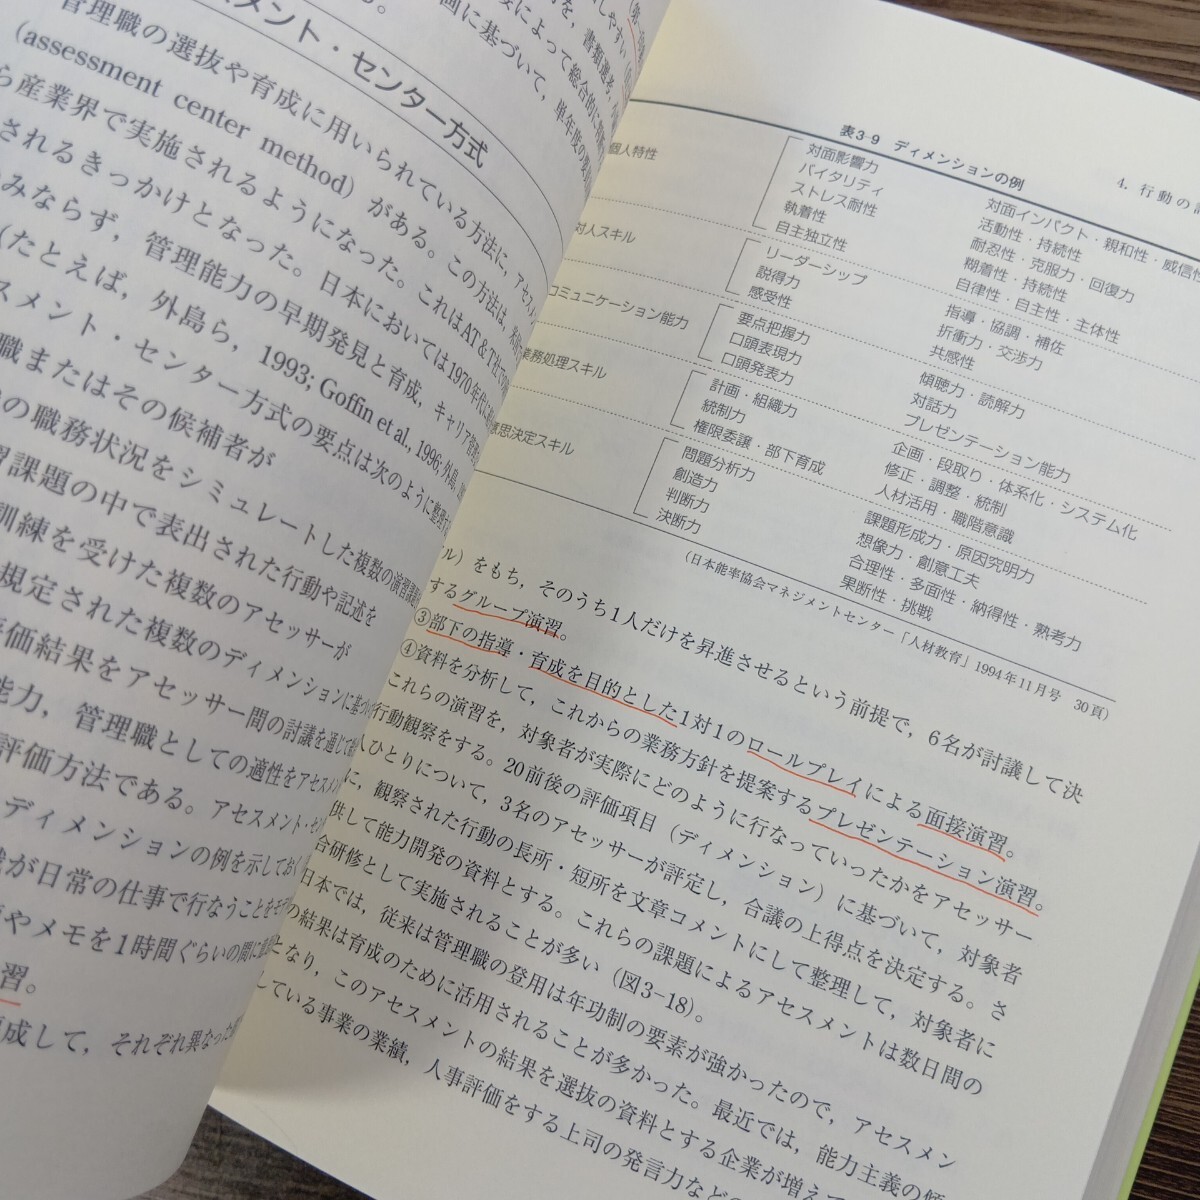 る。
画に基づいて，単年度の要員
スメント・センター方式
管理職の選抜や育成に用いられている方法に，アセス
（assessment center method）がある。この方法は，米
ら産業界で実施されるようになった。これはAT＆T社で
されるきっかけとなった。日本においては1970年代に
みならず，管理能力の早期発見と育成，キャリア
（たとえば，外島ら，1993; Goffin et al., 1996; 外島，
スメント・センター方式の要点は次のように整理
職またはその候補者が
の職務状況をシミュレートした複数の演習課題
習課題の中で表出された行動や記述を
訓練を受けた複数のアセッサーが
規定された複数のディメンションに基づ
評価結果をアセッサー間の討議を通じて
能力，管理職としての適性をアセスメン
評価方法である。アセスメント・セン
ディメンションの例を示しておく
が日常の仕事で行なうことを
やメモを1時間ぐらいの間に
習。
成して，それぞれ異なった
4. 行動の
表3-9 ディメンションの例
個人特性
対面影響力 対面インパクト・親和性・威信性
バイタリティ 活動性・持続性
ストレス耐性 耐忍性・克服力・回復力
執着性 糊着性・持続性
自主独立性 自律性・自主性・主体性
対人スキル
リーダーシップ 指導・協調・補佐
説得力 折衝力・交渉力
感受性 共感性
コミュニケーション能力
要点把握力 傾聴力・読解力
口頭表現力 対話力
口頭発表力 プレゼンテーション能力
業務処理スキル
計画・組織力 企画・段取り・体系化・システム化
統制力 修正・調整・統制
権限委譲・部下育成 人材活用・職階意識
意思決定スキル
問題分析力 課題形成力・原因究明力
創造力 想像力・創意工夫
判断力 合理性・多面性・納得性・熟考力
決断力 果断性・挑戦
（日本能率協会マネジメントセンター「人材教育」1994年11月号 30頁）
ル）をもち，そのうち1人だけを昇進させるという前提で，6名が討議して決
するグループ演習。
③部下の指導・育成を目的とした1対1のロールプレイによる面接演習。
④資料を分析して，これからの業務方針を提案するプレゼンテーション演習。
これらの演習を，対象者が実際にどのように行なっていったかをアセッサー
行動観察をする。20前後の評価項目（ディメンション）に基づいて，対象者
人ひとりについて，3名のアセッサーが評定し，合議の上得点を決定する。さ
に，観察された行動の長所・短所を文章コメントにして整理して，対象者に
供して能力開発の資料とする。これらの課題によるアセスメントは数日間の
合研修として実施されることが多い（図3-18）。
日本では，従来は管理職の登用は年功制の要素が強かったので，アセスメン
の結果は育成のために活用されることが多かった。最近では，能力主義の傾
となり，このアセスメントの結果を選抜の資料とする企業が増えて
している事業の業績，人事評価をする上司の発言力などの